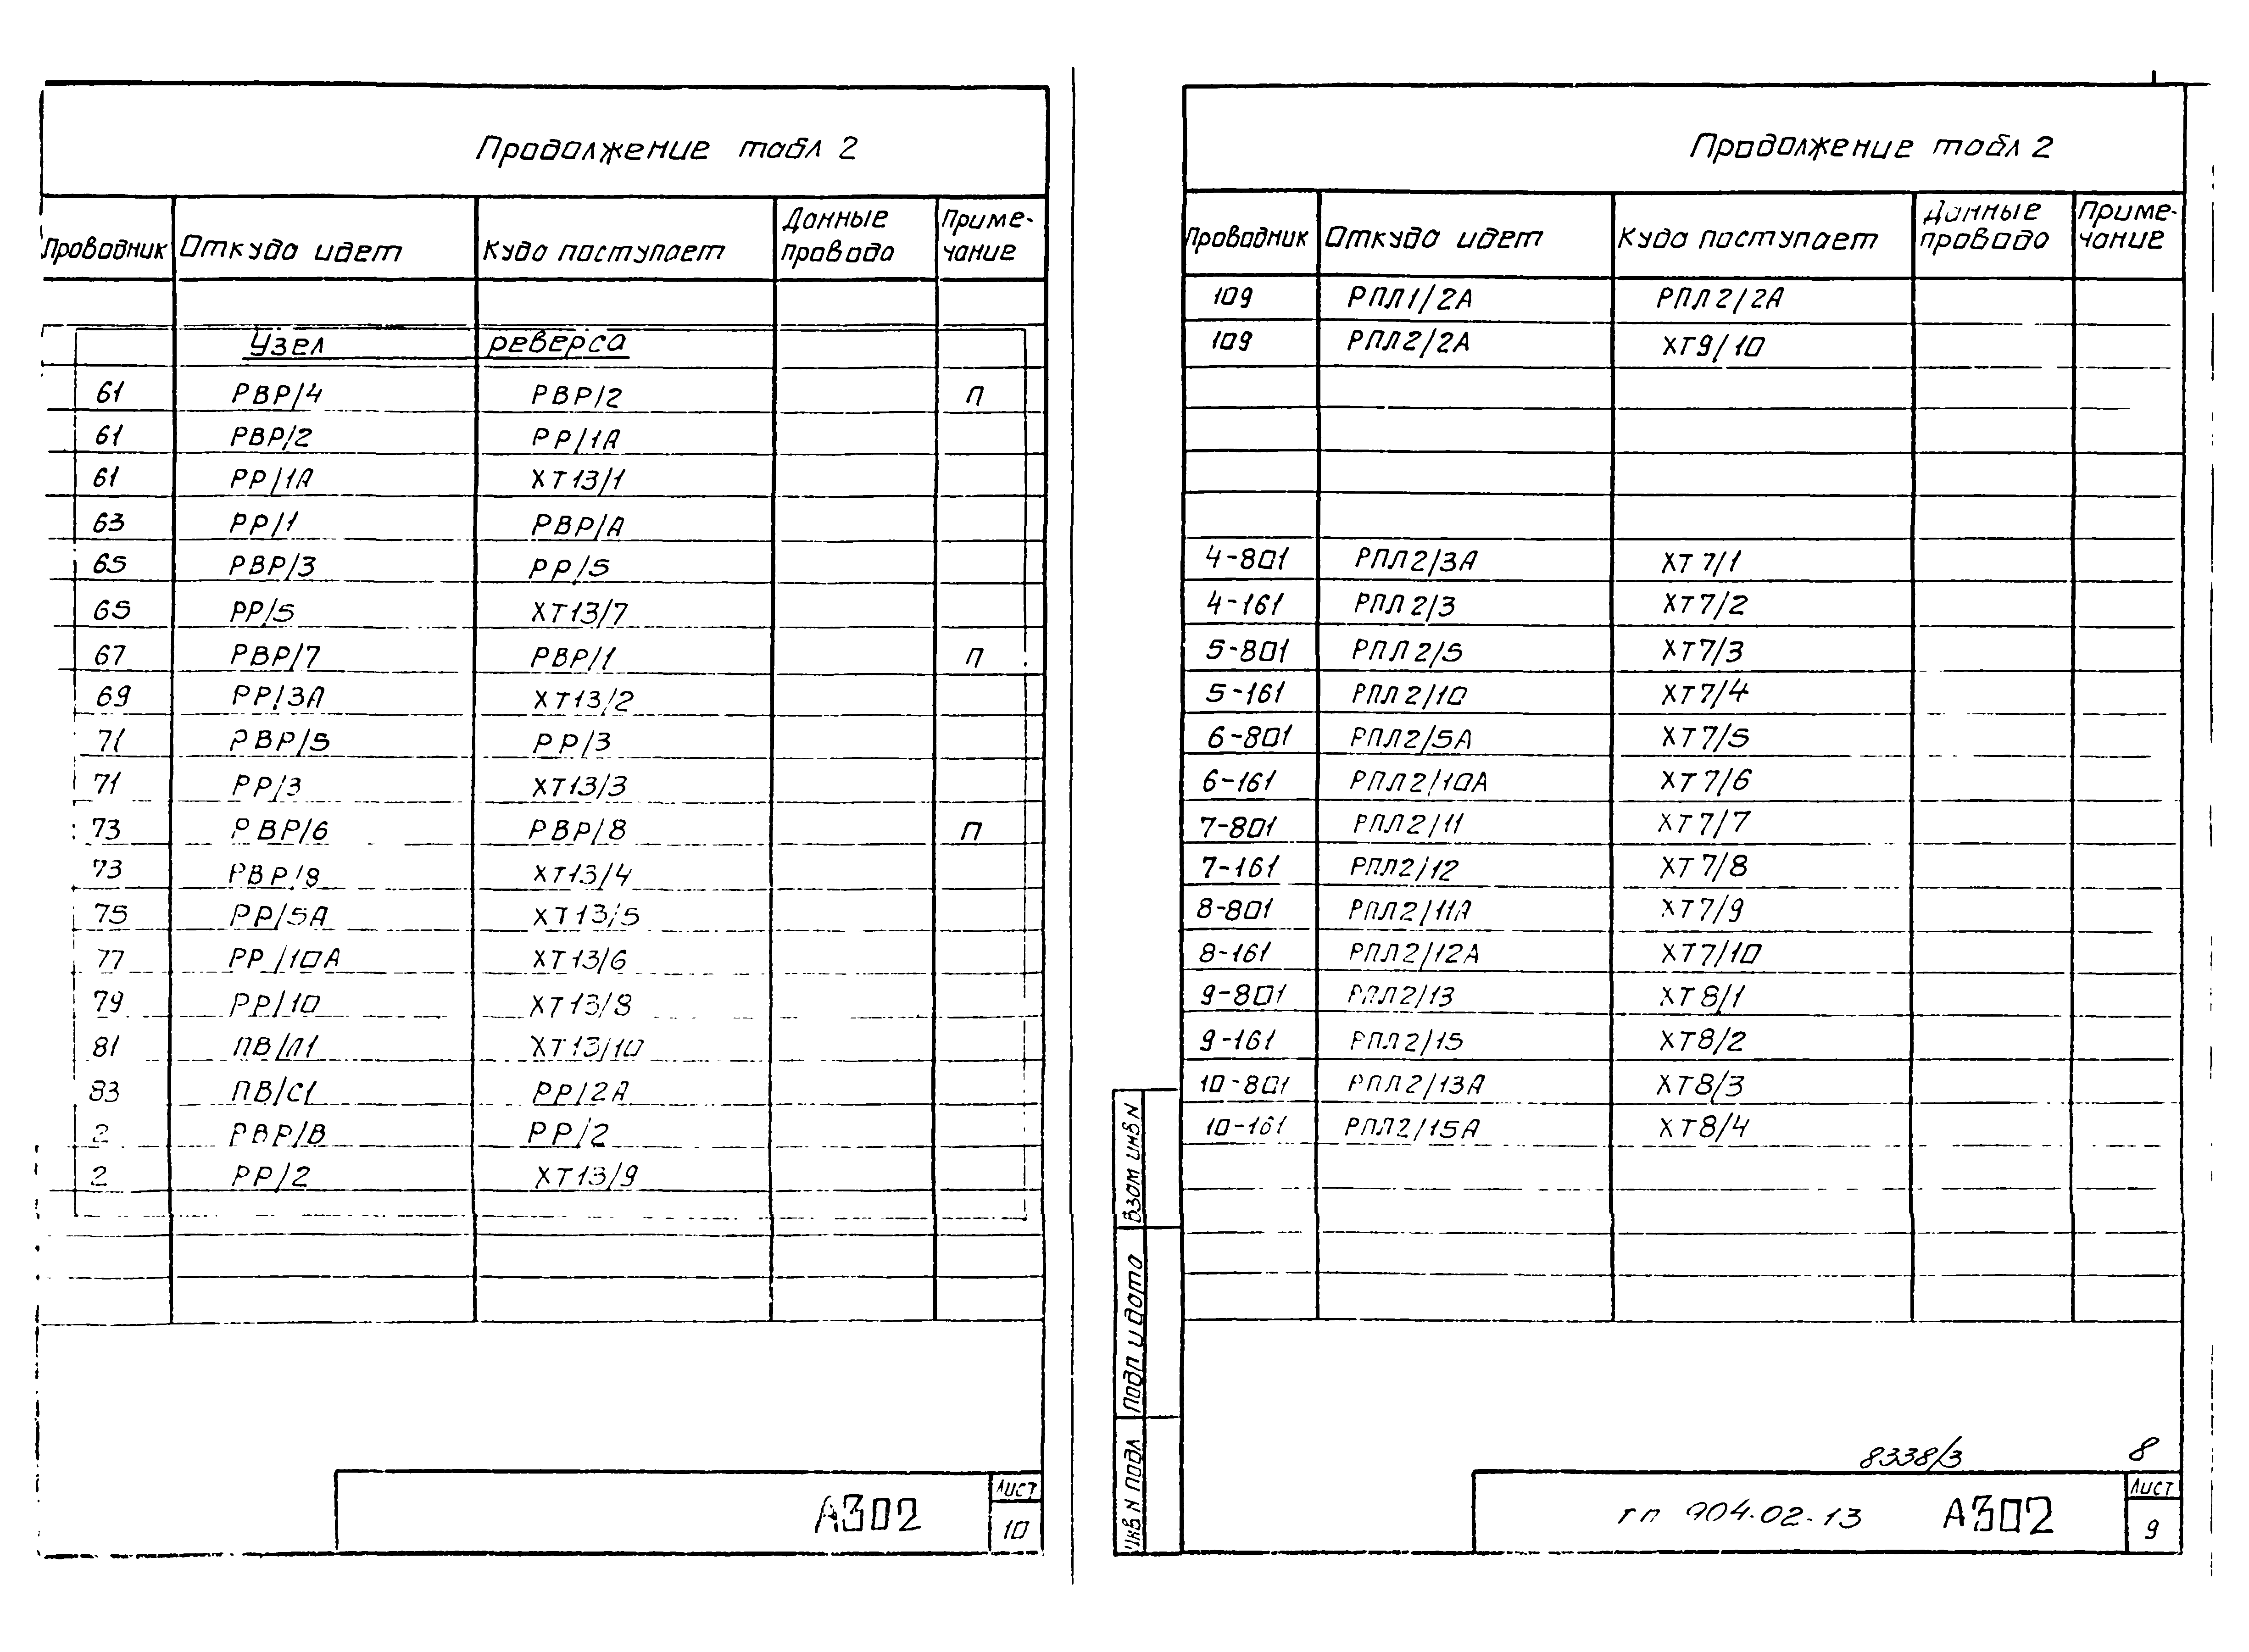 Продолжение табл 2
Проводник Откуда идет Куда поступает Данные провода Примечание
Узел реверса
61 РВР/4 РВР/2 П
61 РВР/2 РР/1А
61 РР/1А ХТ13/1
63 РР/1 РВР/А
65 РВР/3 РР/5
65 РР/5 ХТ13/7
67 РВР/7 РВР/1 П
69 РР/3А ХТ13/2
71 РВР/5 РР/3
71 РР/3 ХТ13/3
73 РВР/6 РВР/8 П
73 РВР/8 ХТ13/4
75 РР/5А ХТ13/5
77 РР/10А ХТ13/6
79 РР/10 ХТ13/8
81 ПВ/Л1 ХТ13/10
83 ПВ/С1 РР/2А
2 РВР/В РР/2
2 РР/2 ХТ13/9
А302
Лист
10
Продолжение табл 2
Проводник Откуда идет Куда поступает Данные провода Примечание
109 РПЛ1/2А РПЛ2/2А
109 РПЛ2/2А ХТ9/10
4-801 РПЛ2/3А ХТ7/1
4-161 РПЛ2/3 ХТ7/2
5-801 РПЛ2/5 ХТ7/3
5-161 РПЛ2/10 ХТ7/4
6-801 РПЛ2/5А ХТ7/5
6-161 РПЛ2/10А ХТ7/6
7-801 РПЛ2/11 ХТ7/7
7-161 РПЛ2/12 ХТ7/8
8-801 РПЛ2/11А ХТ7/9
8-161 РПЛ2/12А ХТ7/10
9-801 РПЛ2/13 ХТ8/1
9-161 РПЛ2/15 ХТ8/2
10-801 РПЛ2/13А ХТ8/3
10-161 РПЛ2/15А ХТ8/4
Взам инв N
Подп и дата
Инв N подл
8338/3 8
тп 904-02-13 А302
Лист
9